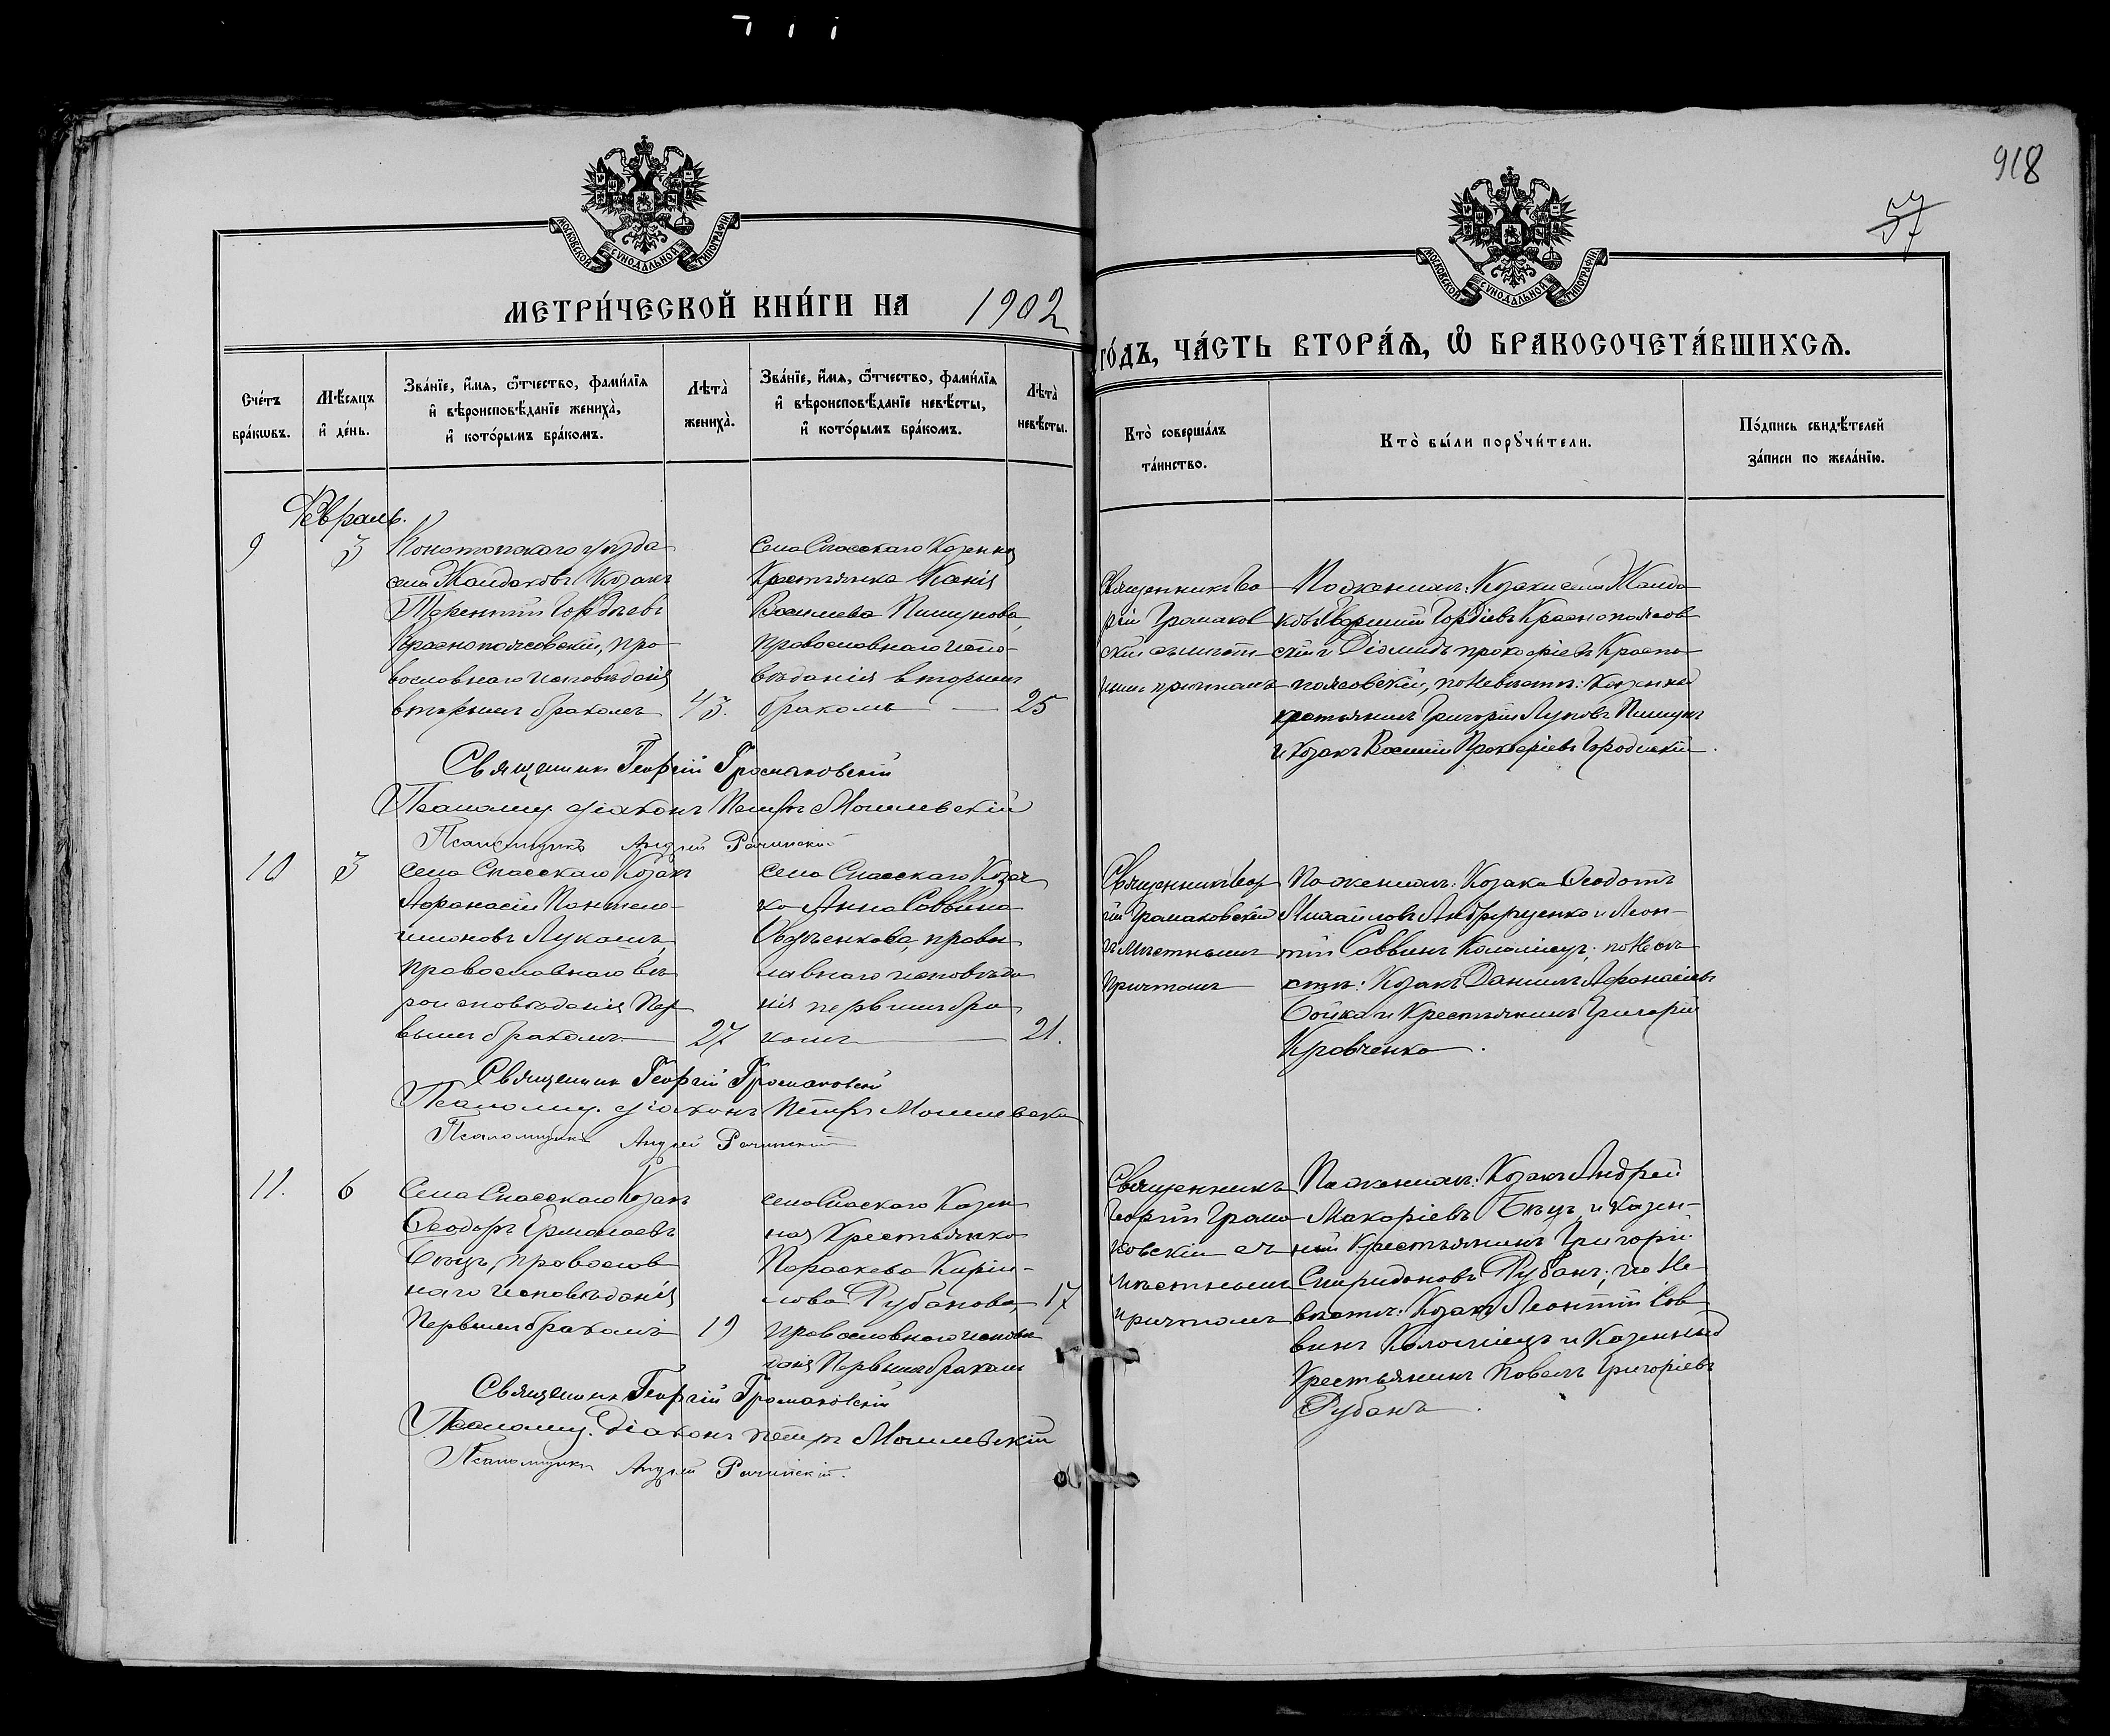 918
57
МОСКОВСКОЙ СѴНОДАЛЬНОЙ ТИПОГРАФІИ
МОСКОВСКОЙ СѴНОДАЛЬНОЙ ТИПОГРАФІИ
МЕТРИ́ЧЕСКОЙ КНИ́ГИ НА 1902
ГО́ДЪ, ЧА́СТЬ ВТОРА́Ѧ, Ѽ БРАКОСОЧЕТА́ВШИХСѦ.
Сче́тъ бра́кѡвъ.
Мѣ́сяцъ и҆ де́нь.
Зва́нїе, и҆́мя, ѻ҆́тчество, фами́лїя
и҆ вѣроисповѣ́данїе жениха̀,
и҆ кото́рымъ бра́комъ.
Лѣта̀ жениха̀.
Зва́нїе, и҆́мя, ѻ҆́тчество, фами́лїя
и҆ вѣроисповѣ́данїе невѣ́сты,
и҆ кото́рымъ бра́комъ.
Лѣта̀ невѣ́сты.
Кто̀ соверша́лъ та́инство.
Кто̀ бы́ли порꙋчи́тели.
По́дпись свидѣ́телей за́писи по жела́нїю.
Февраль.
9
3
Конотопскаго уѣзда
села Жалдаковъ Козакъ
Терентій Гордѣевъ
Краснопоясовскій, пра-
вославнаго исповѣданія
вторымъ бракомъ
43.
Села Спасскаго Казенная
Крестьянка Ксенія
Василева Пишунова,
православнаго испо-
вѣданія вторымъ
бракомъ
25
Священникъ Гео
ргій Громаков
скій съ мѣст-
нымъ причтомъ
По женихѣ: Козаки села Жалда
ковъ Гордіевъ Краснопоясов
скій и Діомидъ Прокофіевъ Красно
поясовскій, по невѣстѣ: Казенный
крестьянинъ Григорій Луковъ Пишунъ
и Козакъ Василій Прокофіевъ Городискій.
Священникъ Георгій Громаковскій
Псаломщ. діаконъ Петръ Могилевскій
Псаломщикъ Андрей Рачинскій
10
3
Села Спасскаго Козакъ
Афанасій Пантеле-
имоновъ Лукашъ,
православнаго вѣ
роисповѣданія Пер
вымъ бракомъ
27
Села Спасскаго Козач
ка Анна Саввина
правос
лавнаго исповѣда
нія первымъ бра
комъ
21.
Священникъ Геор
гій Громаковскій
съ мѣстнымъ
причтомъ
По женихѣ: Козаки Ѳеодотъ
Михайловъ Андрущенко и Леон-
тій Саввинъ Коломіецъ; по невѣ
стѣ: Козакъ Даніилъ Афанасіевъ
Бойко и Крестьянинъ Григорій
Кравченко.
Священникъ Георгій Громаковскій
Псаломщ. діаконъ Петръ Могилевскій
Псаломщикъ Андрей Рачинскій
11.
6
Села Спасскаго Козакъ
Ѳеодоръ Ермолаевъ
Бѣцъ, православ
наго исповѣданія
Первымъ бракомъ
19
села Спаскаго Казен
ная Крестьянка
Параскева Кирил-
лова Рубанова,
православнаго исповѣ
данія Первымъ бракомъ
17
Священникъ
Георгій Грома
ковскій съ
мѣстнымъ
причтомъ
По женихѣ: Козакъ Андрей
Макаріевъ Бѣцъ и казен-
ный Крестьянинъ Григорій
Спиридоновъ Рубанъ; по не
вѣстѣ: Козакъ Леонтій Сав
винъ Коломіецъ и Казенный
Крестьянинъ Павелъ Григоріевъ
Рубанъ.
Священникъ Георгій Громаковскій
Псаломщ. Діаконъ Петръ Могилевскій
Псаломщикъ Андрей Рачинскій.